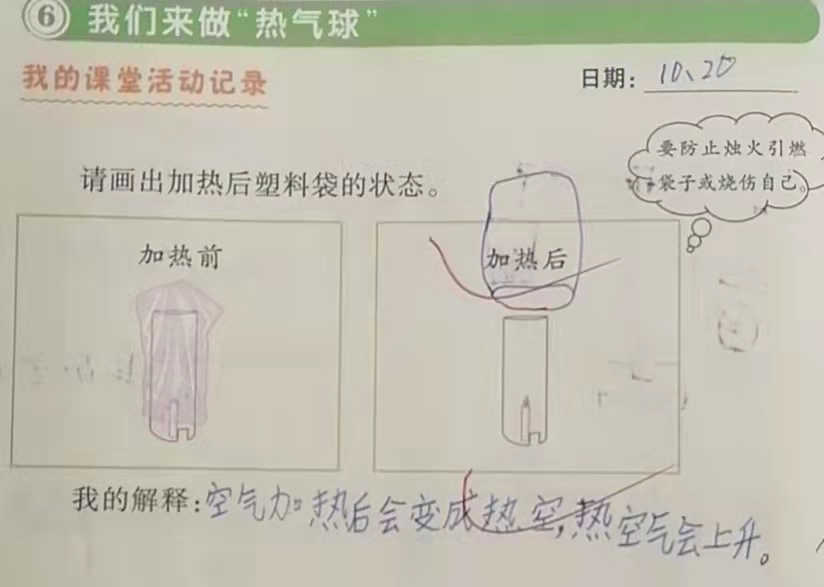 6 我们来做“热气球”
我的课堂活动记录
日期: 10、20
要防止烛火引燃
袋子或烧伤自己。
请画出加热后塑料袋的状态。
加热前
加热后
我的解释:空气加热后会变成热空,热空气会上升。